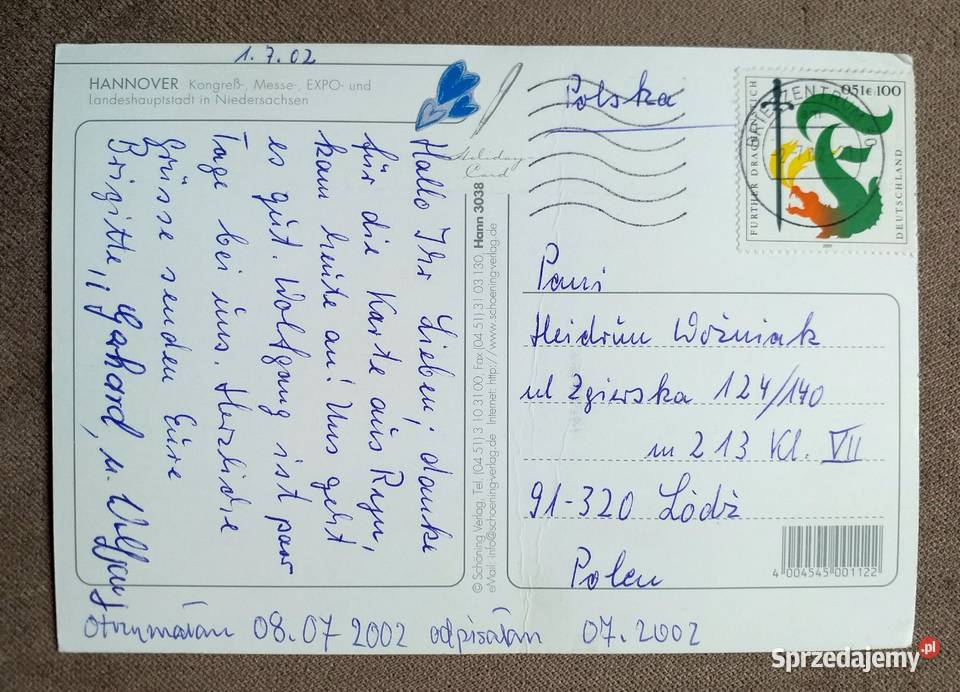 1.7.02
HANNOVER Kongreß-, Messe-, EXPO- und
Landeshauptstadt in Niedersachsen
Hallo Ihr Lieben, danke
für die Karte aus Ryn,
kam heute an! Uns geht
es gut. Wolfgang ist paar
Tage bei uns. Herzliche
Grüsse senden Eure
Brigitte, Gerhard, u. Wolfgang
Holiday
Card
© Schöning Verlag, Tel. (04 51) 3 10 3100, Fax (04 51) 31 03 130, Hann 3038
eMail: info@schoening-verlag.de Internet: http://www.schoening-verlag.de
Polska
FURTHER DRACHENSTICH
0,51€ 100
DEUTSCHLAND
2001
BRIEFZENTRUM
Pani
Heidrun Woźniak
ul Zgierska 124/140
m 213 Kl. VII
91-320 Łódź
Polen
4 004545 001122
otrzymałam 08.07 2002 odpisałam 07.2002
Sprzedajemy.pl